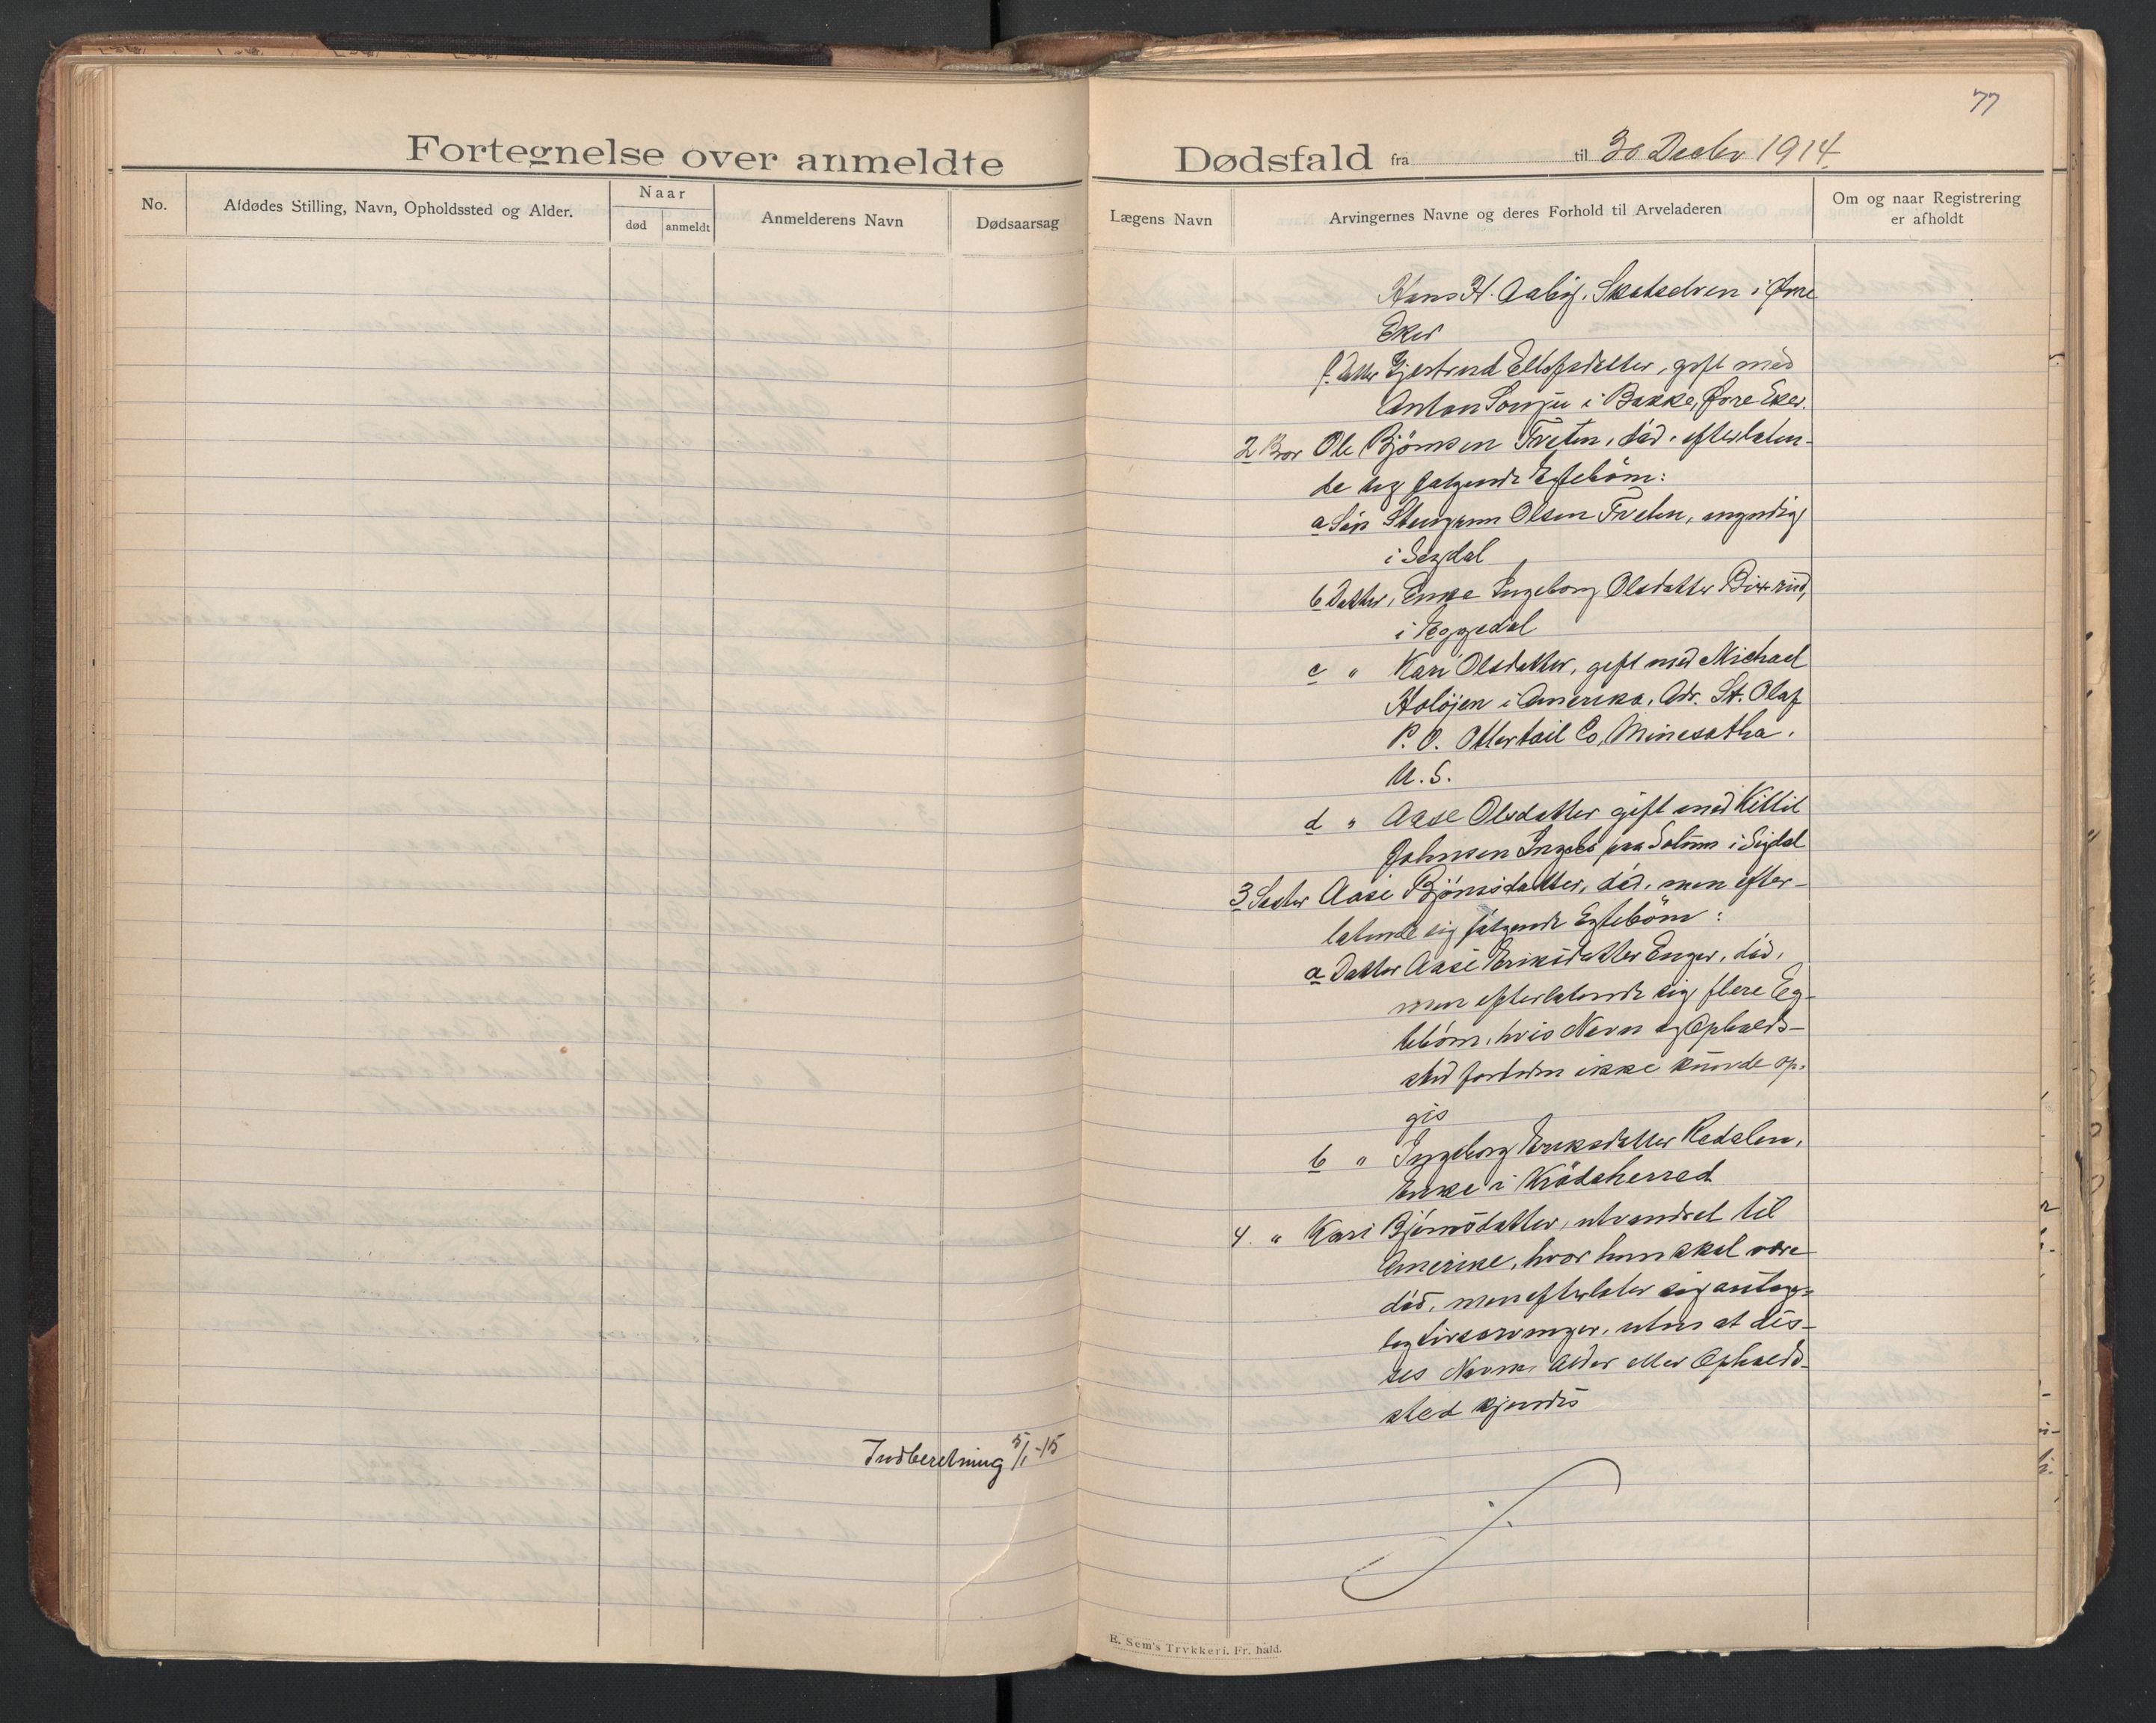 77
Fortegnelse over anmeldte Dødsfald fra til 30 Decbr 1914.
No.
Afdødes Stilling, Navn, Opholdssted og Alder.
Naar
død
anmeldt
Anmelderens Navn
Dødsaarsag
Lægens Navn
Arvingernes Navne og deres Forhold til Arveladeren
Om og naar Registrering
er afholdt
Hans H. Aaby, Skotselven i Øvre
Eker
f. Datter Gjertrud Ellefsdatter, gift med
Anton i Bakke, Øvre Eker.
2 Bror Ole Bjørnsen Tveten, død, efterlaten-
de sig følgende Egtebørn:
a Søn Olsen Tveten, myndig
i Sigdal
b Datter, Enke Ingeborg Olsdatter
i Eggedal
c " Kari Olsdatter, gift med Michael
i Amerika, Adr. St. Olaf
P. O. Ottertail Co, Minesotha.
U. S.
d " Aase Olsdatter gift med Kittil
Johnsen fra Solum i Sigdal
3 Søster Aase Bjørnsdatter, død, men efter-
latende sig følgende Egtebørn:
a Datter Aase Eriksdatter Enger, død,
men efterlatende sig flere Eg-
tebørn, hvis Navn og Opholds-
sted forøvrigt ikke kunde op-
gis
b " Ingeborg Eriksdatter Redalen,
Enke i Krödsherred
4. " Kari Bjørnsdatter, utvandret til
Amerika, hvor hun skal være
død, men efterlater sig antage-
lig Livsarvinger, uten at dis-
ses Navn, Alder eller Opholds-
sted kjendes
Indberetning 5/1-15
E. Sem's Trykkeri, Fr. hald.